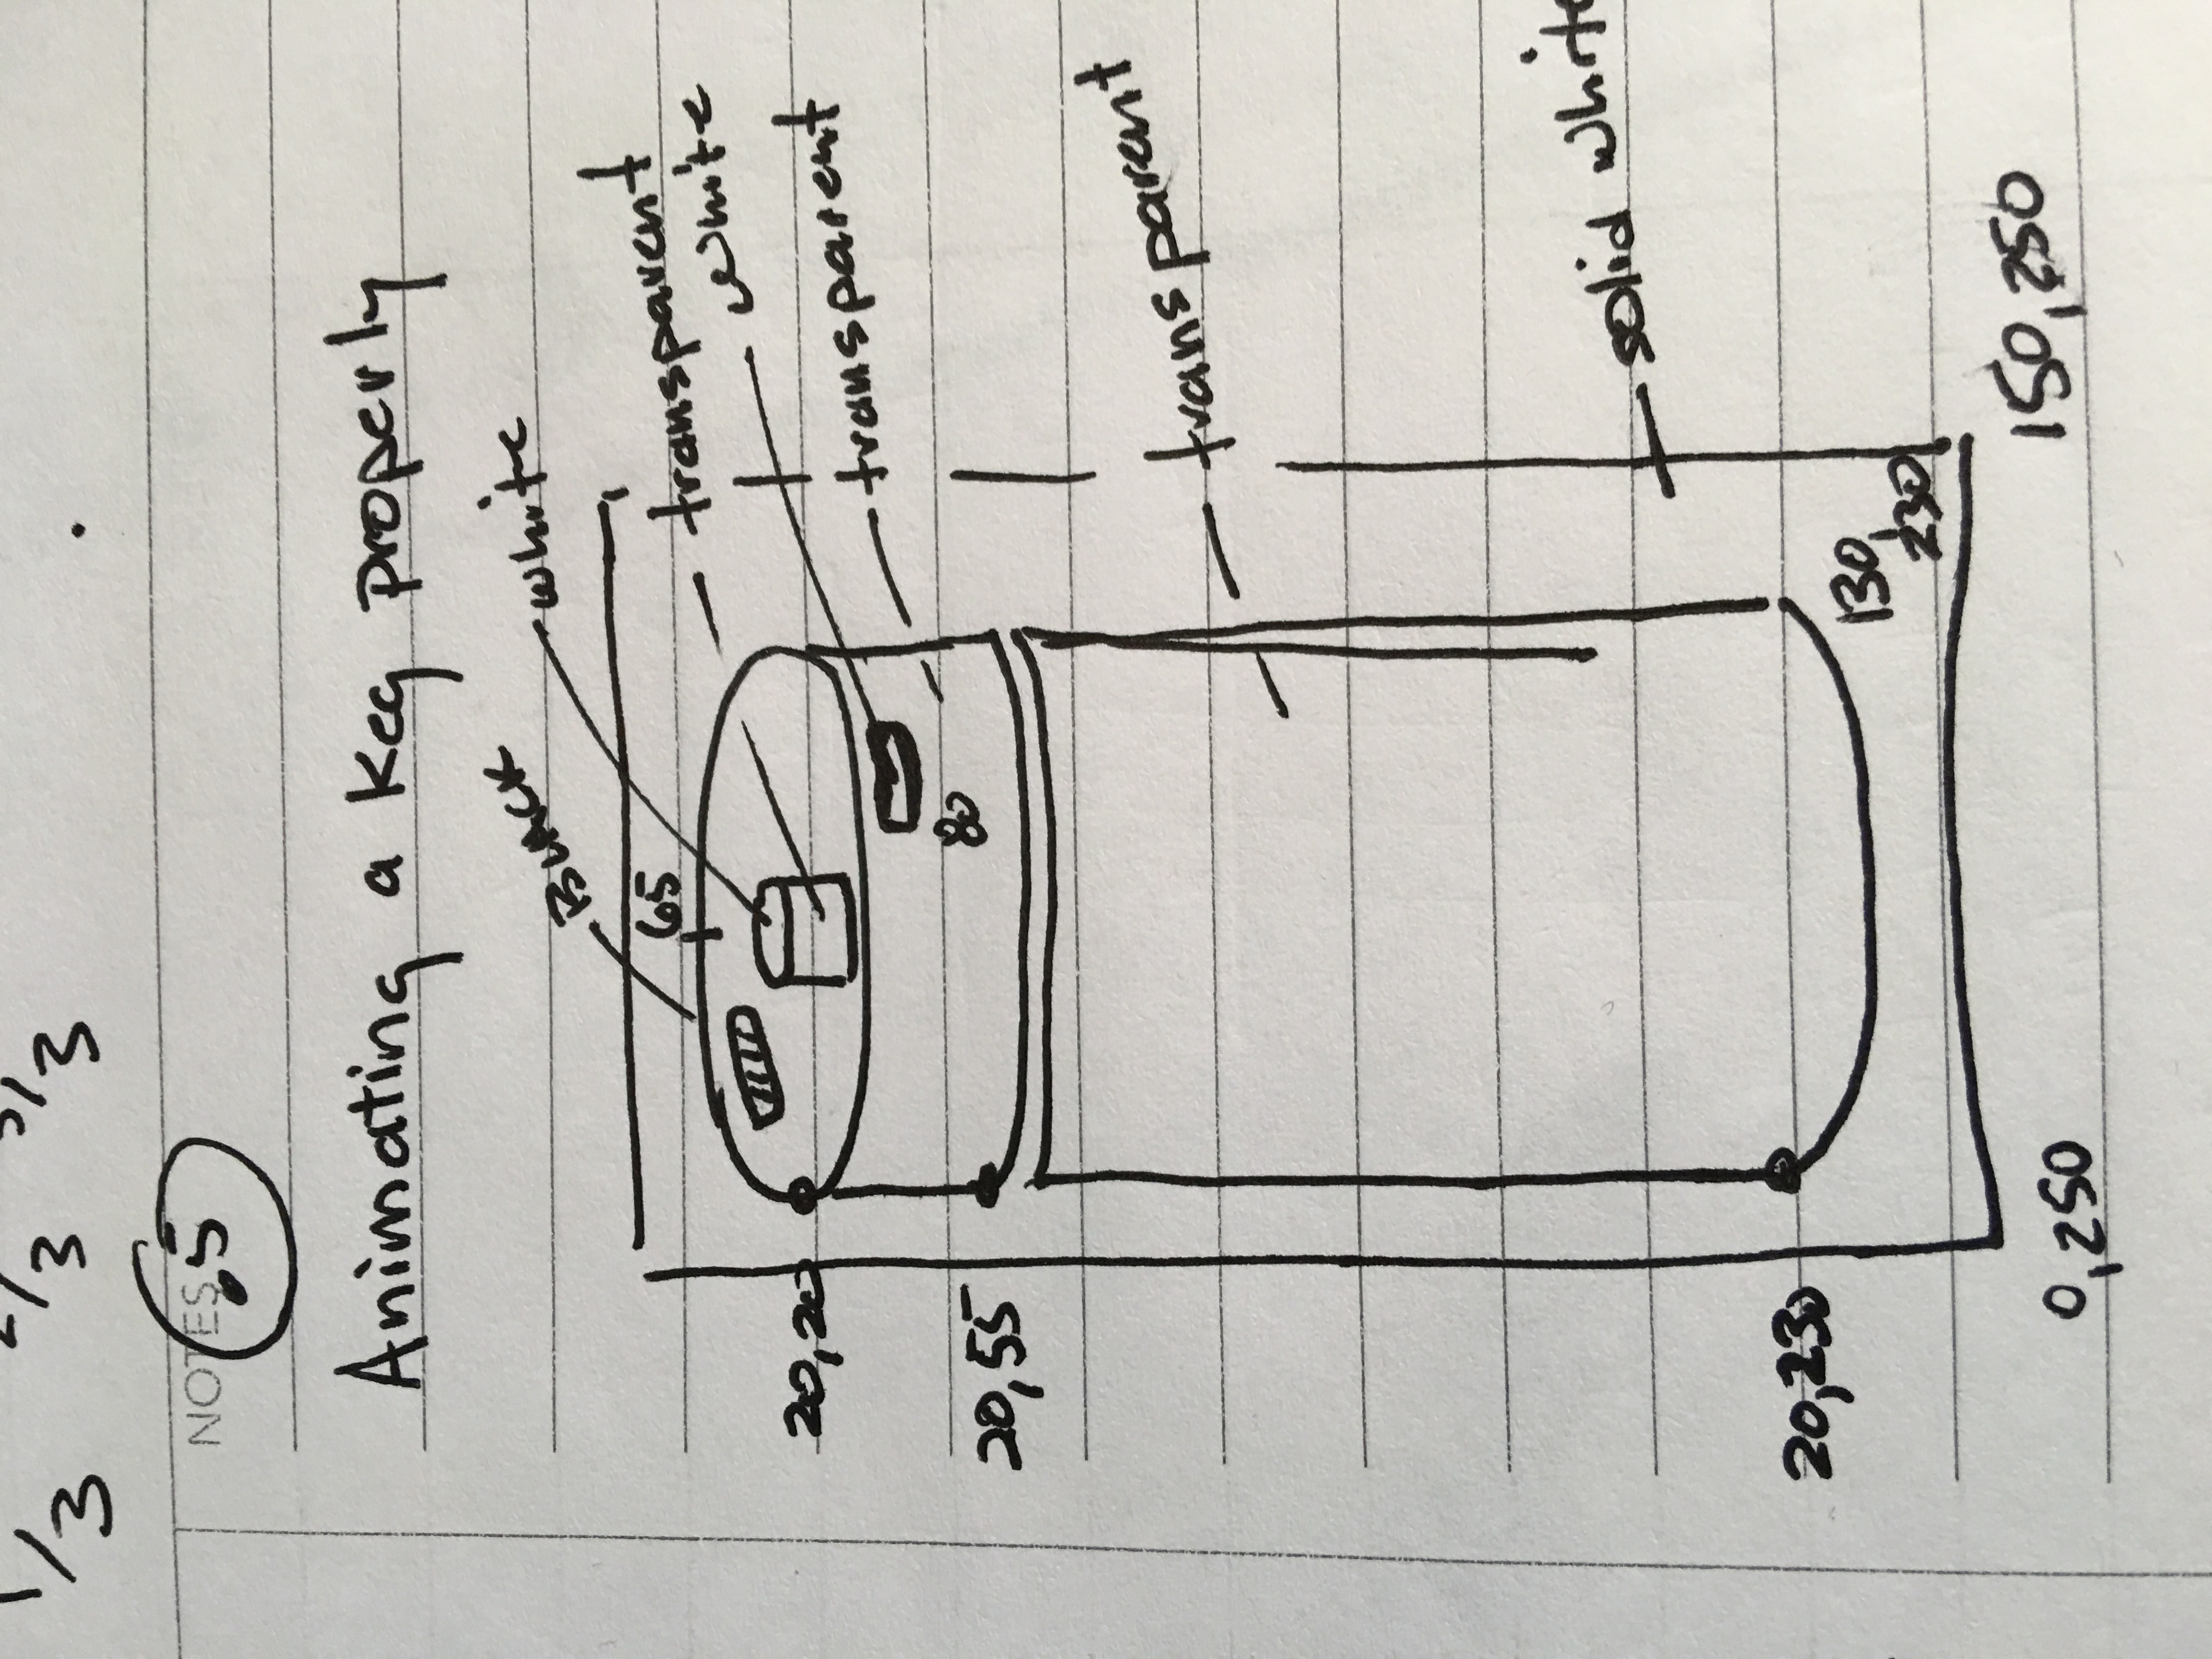 1/3 2/3 3/3
NOTES
.5
Animating a keg properly
BLACK
white
65
transparent
white
20,20
transparent
80
20,55
transparent
solid white
20,230
130,
230
150,250
0,250